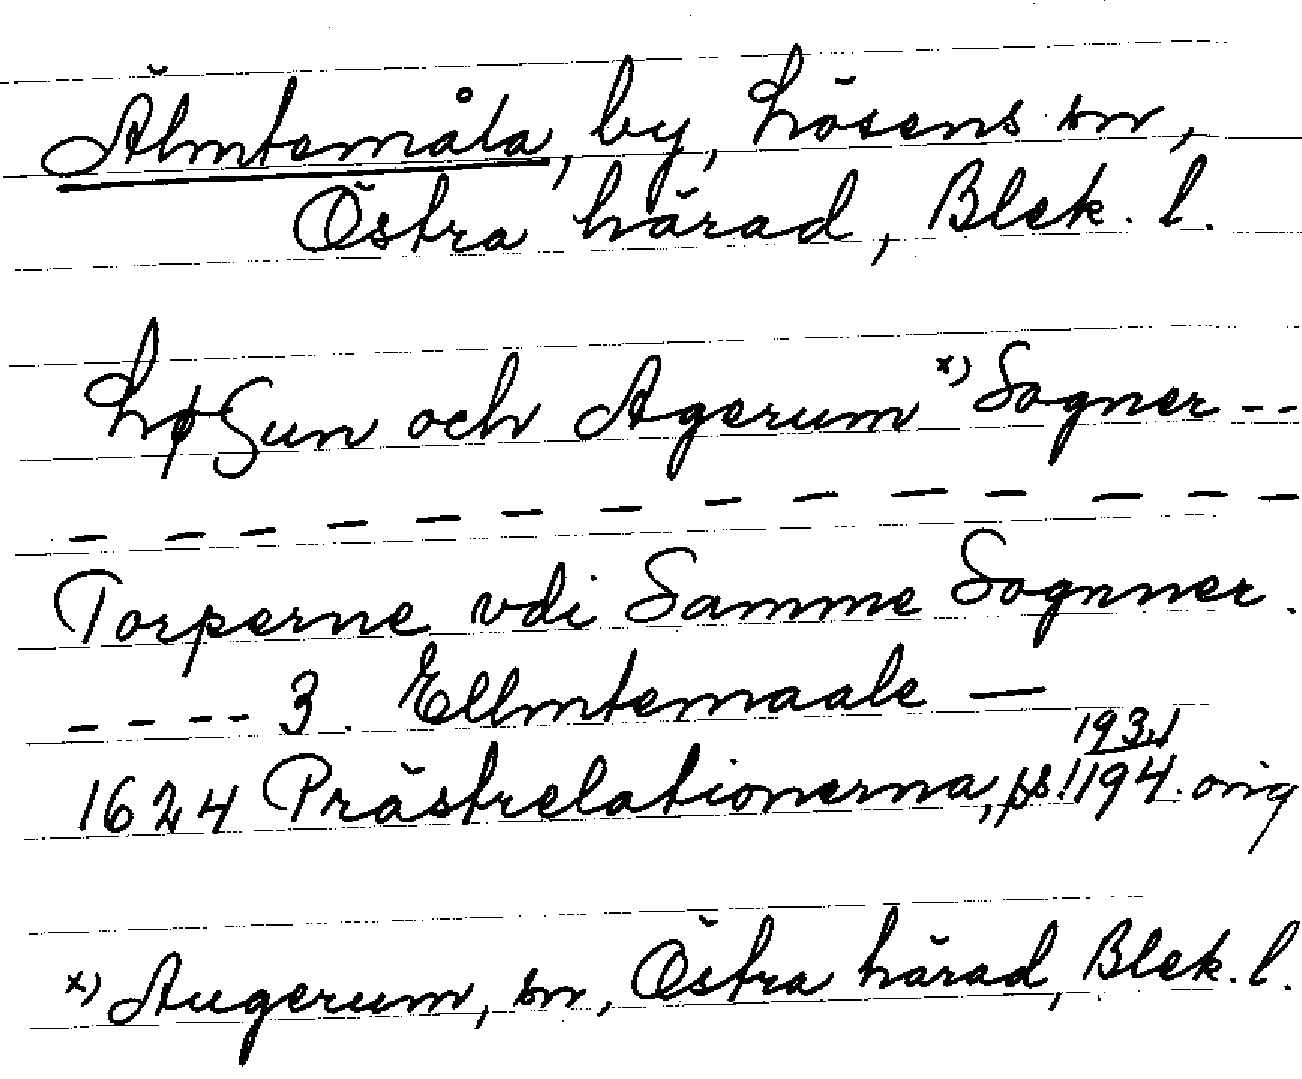 Älmtemåla, by, Lösens sn,
Östra härad, Blek. l.
LøSun och Agerum x) Sogner --
– – – – – – – – – – – – –
Torperne vdi Samme Sognner.
---- 3. Ellmtemaale —
193,
1624 Prästrelationerna, 194. orig
x) Augerum, sn, Östra härad, Blek. l.